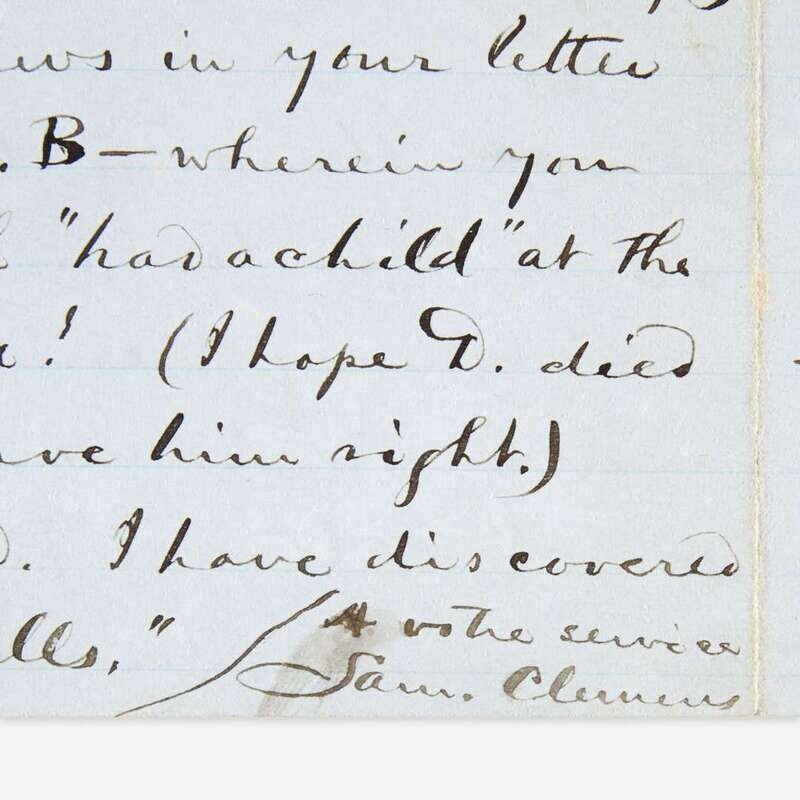 in your letter
. B — wherein you
"had a child" at the
! (I hope D. died
him right.)
. I have discovered
lls."
A votre service
Sam. Clemens